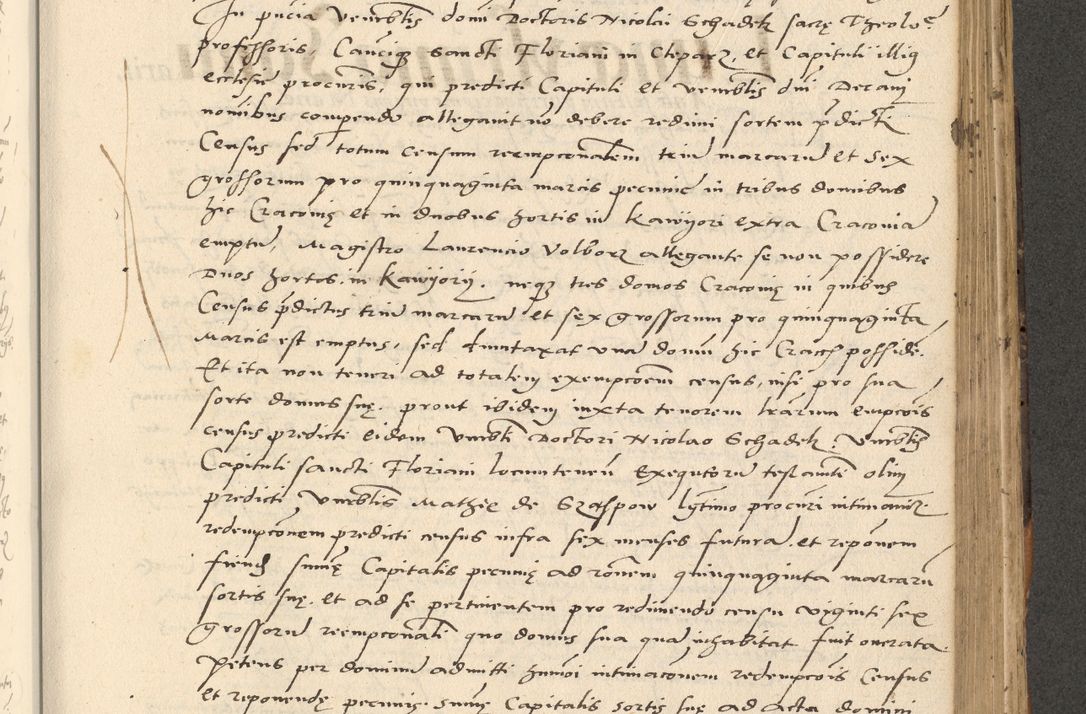 In pn̄cia venerblis domi Doctoris Nicolai Schadek sacrę Theolo.
professoris, Canciq̨ Sancti Floriani in Cleparz, Et Capituli illiq
Ecclesie procuris, qui predicti Capituli Et venerblis dni Decani
nominibus compendo allegavit nō debere redimi sortem pdicti
Census sed totum Censum reempconalem triū marcarū Et sex
grossorum pro quinquaginta marcis pecunie in tribus domibus
hic Cracovię Et in duobus hortis in Kawyori Extra Cracoviā
emptū, Magistro Laurencio Volborz allegante se non possidere
Duos hortos in Kawyorij. neqz tres domos Cracovię in quibus
Census pdictus triū marcarū Et sex grossorum pro quinquaginta
Marcis est emptus, sed duntaxat unā domū hic Cracō possidē.
Et ita non teneri ad totalem exempcoem census, nisi pro sua
sorte domus suę. prout ibidem iuxta tenorem lrarum empcois
census predicti Eidem Vnrbli Doctori Nicolao Schadek, Vnrblis
Capituli sancti Floriani locumtenen̄ Exequtorū testamti olim
predicti Vnerblis Mathie de lgtimo procuri intimavit
redempconem predicti census infra sex menses futura. et reponem
fiendā summę Capitalis pecunię ad rōnem quinquaginta marcarū
sortis suę. Et ad se pertinentem pro redimendo censu viginti sex
grossorū reempconali quo domus sua quā inhabitat fuit onerata.
Petens per dominū admitti hmōi intimaconem redempcois Census
Et reponendę pecunię. summę Capitalis sortis suę ad acta domini